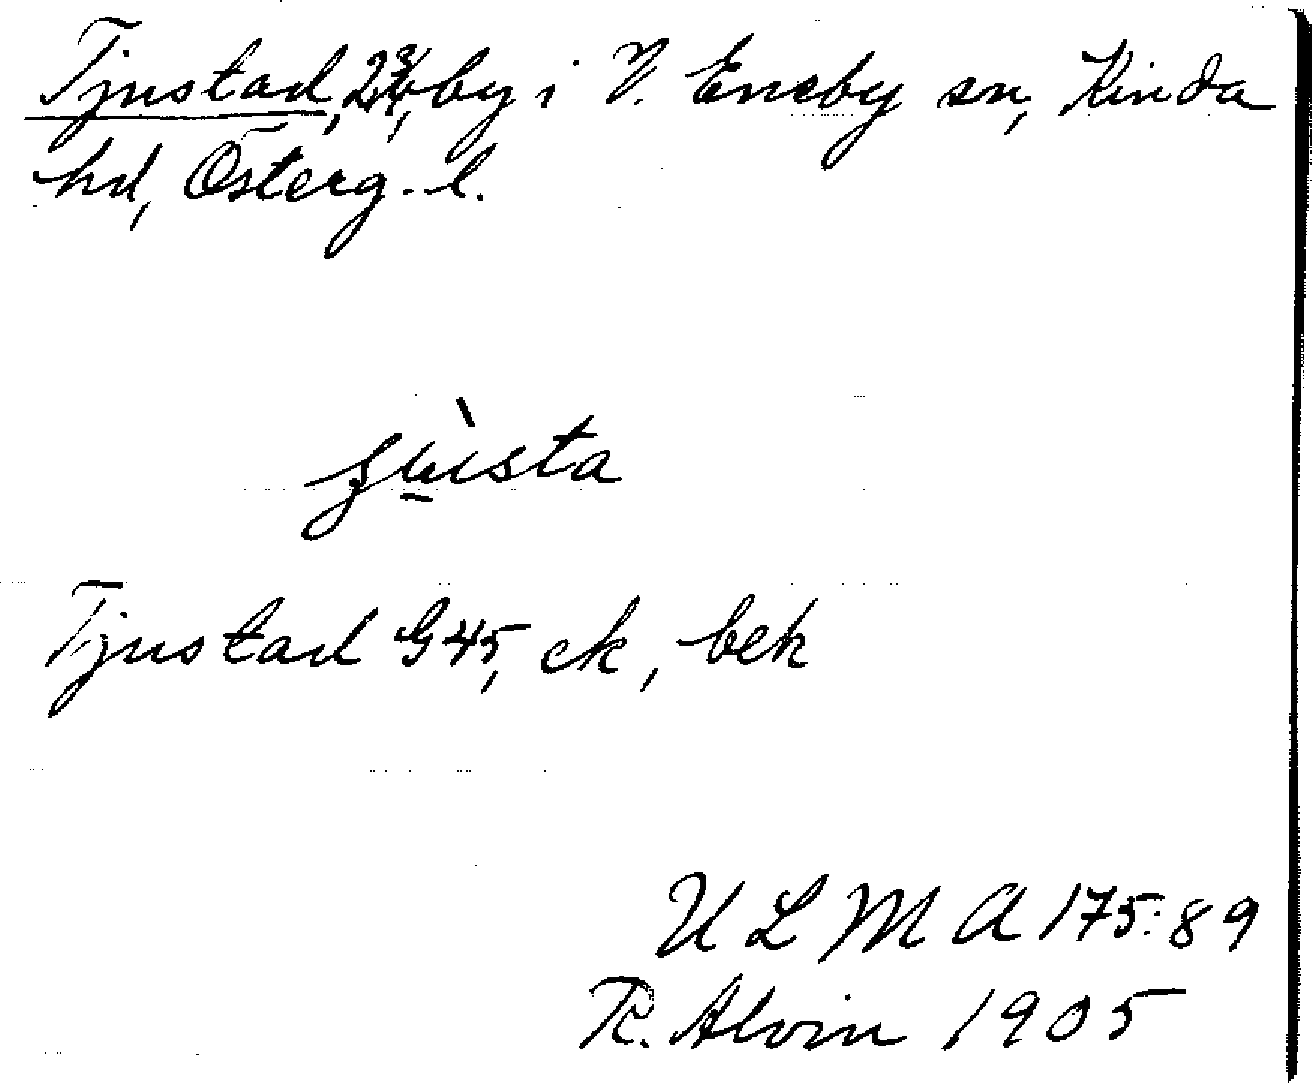 Tjustad, 2 3/4, by i V. Eneby sn, Kinda
hd, Österg. l.
Tjustad G 45, ek, bek
U L M A 175:89
R. Alvin 1905